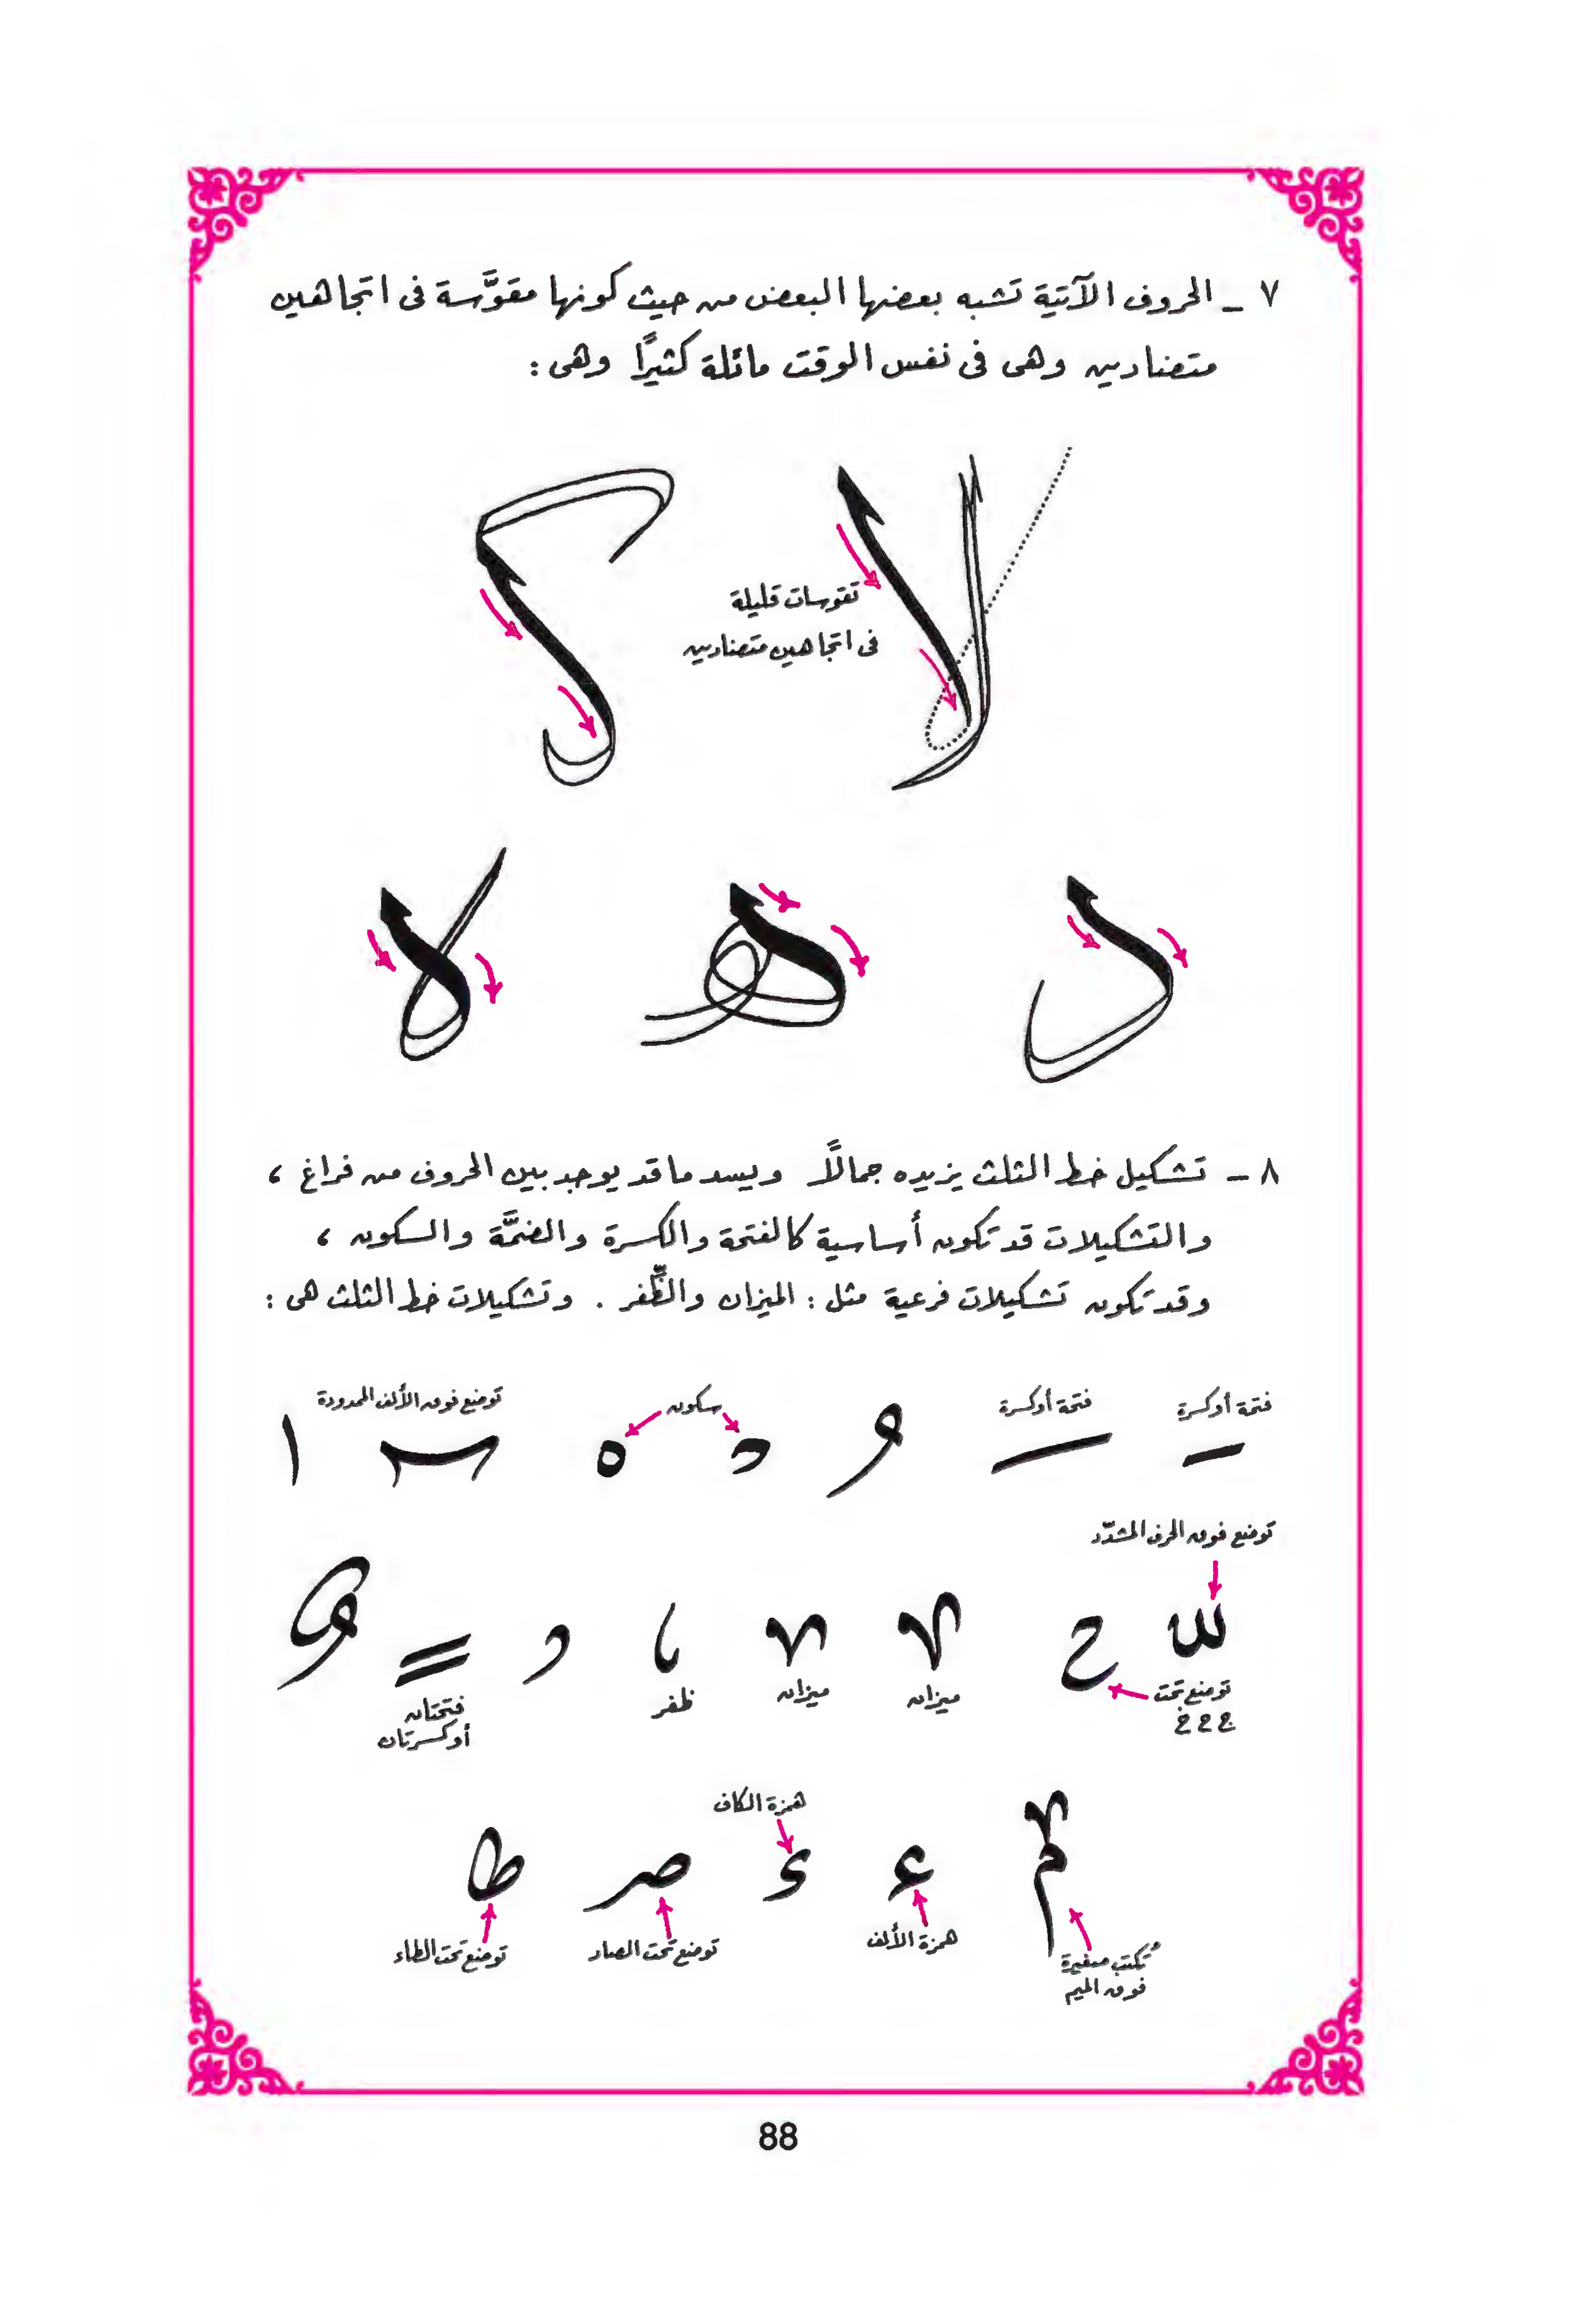 ٧ - الحروف الآتية تشبه بعضها البعض من حيث كونها مقوَّسة فى اتجاهين
متضادين وهى فى نفس الوقت مائلة كثيرًا وهى :
لا ك
تقوسات قليلة
فى اتجاهين متضادين
د هـ لا
٨ - تشكيل خط الثلث يزيده جمالًا ويسد ما قد يوجد بين الحروف من فراغ ،
والتشكيلات قد تكون أساسية كالفتحة والكسرة والضمَّة والسكون ،
وقد تكون تشكيلات فرعية مثل : الميزان والظُّفر . وتشكيلات خط الثلث هى :
فتحة أوكسرة فتحة أوكسرة سكون توضع فوق الألف الممدودة
توضع فوق الحرف المشدّد
توضع تحت
ج ح خ
ميزان ميزان ظفر فتحتان
أوكسرتان
همزة الكاف
م ء ء صر ط
تُكتب صغيرة
فوق الميم
همزة الألف توضع تحت الصاد توضع تحت الطاء
88